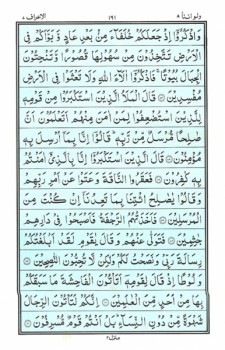 ولواننا ٨ ١٦١ الاعراف ٧
وَاذْكُرُوْٓا اِذْ جَعَلَكُمْ خُلَفَآءَ مِنْۢ بَعْدِ عَادٍ وَّ بَوَّاَكُمْ فِی
الْاَرْضِ تَتَّخِذُوْنَ مِنْ سُهُوْلِهَا قُصُوْرًا وَّ تَنْحِتُوْنَ
الْجِبَالَ بُیُوْتًا ۚ فَاذْكُرُوْٓا اٰلَآءَ اللّٰهِ وَ لَا تَعْثَوْا فِی الْاَرْضِ
مُفْسِدِیْنَ ۞ قَالَ الْمَلَاُ الَّذِیْنَ اسْتَكْبَرُوْا مِنْ قَوْمِهٖ
لِلَّذِیْنَ اسْتُضْعِفُوْا لِمَنْ اٰمَنَ مِنْهُمْ اَتَعْلَمُوْنَ اَنَّ
صٰلِحًا مُّرْسَلٌ مِّنْ رَّبِّهٖ ؕ قَالُوْٓا اِنَّا بِمَآ اُرْسِلَ بِهٖ
مُؤْمِنُوْنَ ۞ قَالَ الَّذِیْنَ اسْتَكْبَرُوْٓا اِنَّا بِالَّذِیْٓ اٰمَنْتُمْ
بِهٖ كٰفِرُوْنَ ۞ فَعَقَرُوا النَّاقَةَ وَ عَتَوْا عَنْ اَمْرِ رَبِّهِمْ
وَ قَالُوْا یٰصٰلِحُ ائْتِنَا بِمَا تَعِدُنَآ اِنْ كُنْتَ مِنَ
الْمُرْسَلِیْنَ ۞ فَاَخَذَتْهُمُ الرَّجْفَةُ فَاَصْبَحُوْا فِیْ دَارِهِمْ
جٰثِمِیْنَ ۞ فَتَوَلّٰی عَنْهُمْ وَ قَالَ یٰقَوْمِ لَقَدْ اَبْلَغْتُكُمْ
رِسَالَةَ رَبِّیْ وَ نَصَحْتُ لَكُمْ وَ لٰكِنْ لَّا تُحِبُّوْنَ النّٰصِحِیْنَ ۞
وَ لُوْطًا اِذْ قَالَ لِقَوْمِهٖٓ اَتَاْتُوْنَ الْفَاحِشَةَ مَا سَبَقَكُمْ
بِهَا مِنْ اَحَدٍ مِّنَ الْعٰلَمِیْنَ ۞ اِنَّكُمْ لَتَاْتُوْنَ الرِّجَالَ
شَهْوَةً مِّنْ دُوْنِ النِّسَآءِ ؕ بَلْ اَنْتُمْ قَوْمٌ مُّسْرِفُوْنَ ۞
منزل ٢